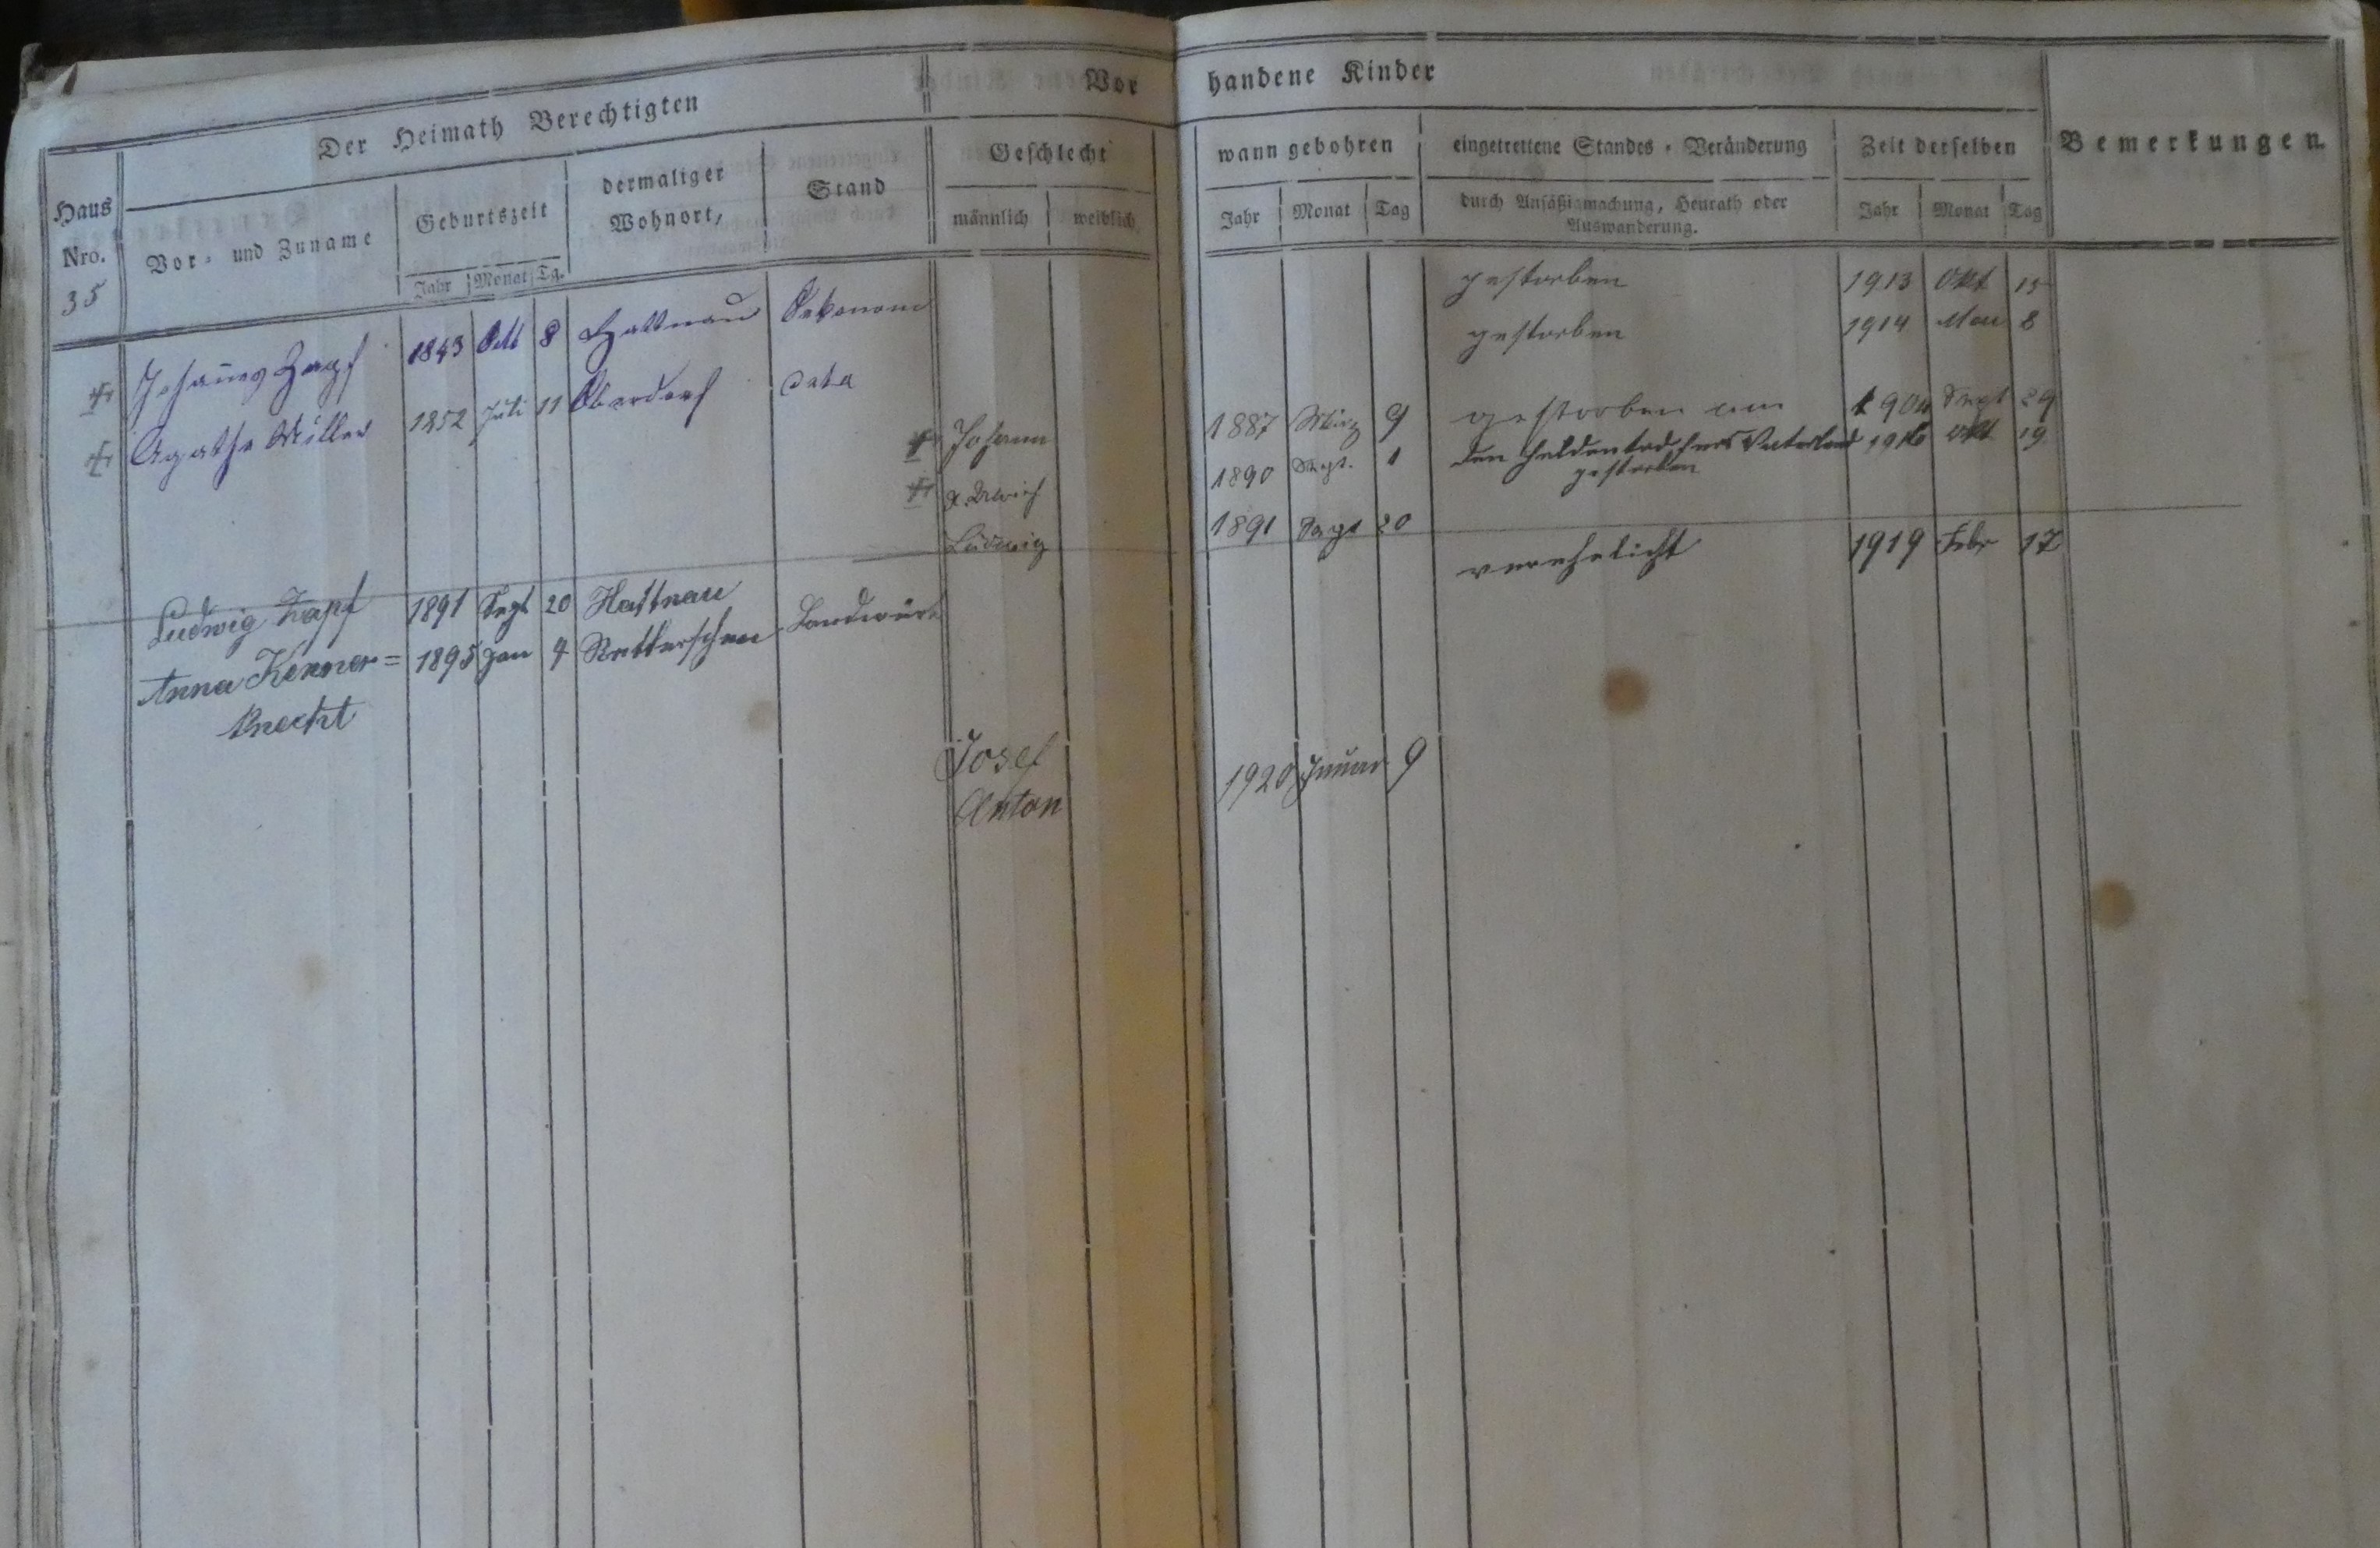 Der Heimath Berechtigten
Vorhandene Kinder
Bemerkungen.
Haus Nro.
Vor- und Zuname
Geburtszeit
Jahr Monat Tg.
dermaliger Wohnort,
Stand
Geschlecht
männlich weiblich
wann gebohren
Jahr Monat Tag
eingetrettene Standes-Veränderung
durch Ansäßigmachung, Heurath oder
Auswanderung.
Zeit derselben
Jahr Monat Tag
35
Johannes Zapf 1843 Okt 8 Hattnau Oekonom gestorben 1913 Okt 15
Agathe Müller 1852 Juli 11 Oberdorf gestorben 1914 8
Johann 1887 März 9 gestorben am 1904 Sept 29
1890 Sept. 1 den Heldentod fürs Vaterland 1916 Okt 19
gestorben
Ludwig 1891 Sept 20 verehelicht 1919 Febr 17
Ludwig Zapf 1891 Sept 20 Hattnau Landwirt
Anna Kenner= 1895 Jan 4
knecht
Josef 1920 Januar 9
Anton